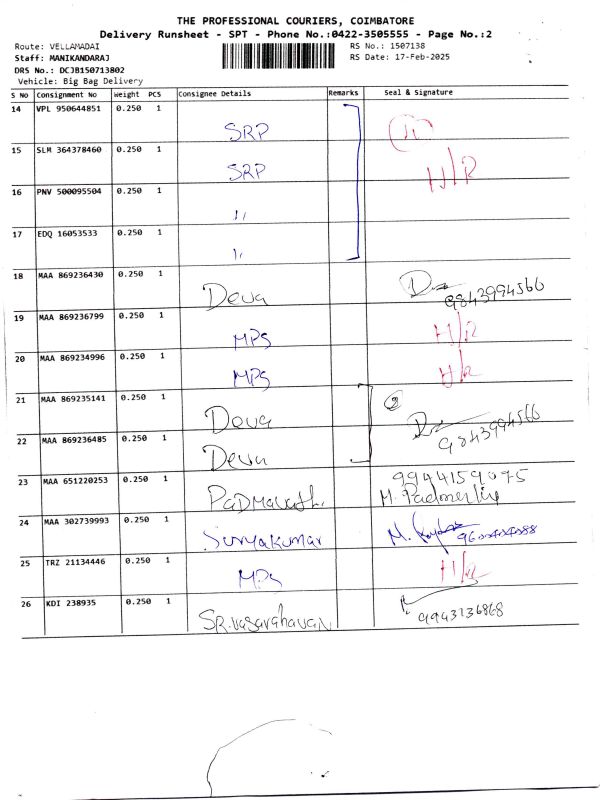 THE PROFESSIONAL COURIERS, COIMBATORE
Delivery Runsheet - SPT - Phone No.:0422-3505555 - Page No.:2
Route: VELLAMADAI RS No.: 1507138
Staff: MANIKANDARAJ RS Date: 17-Feb-2025
DRS No.: DCJB150713802
Vehicle: Big Bag Delivery
S No Consignment No Weight PCS Consignee Details Remarks Seal & Signature
14 VPL 950644851 0.250 1 SRP
15 SLM 364378460 0.250 1 SRP H/R
16 PNV 500095504 0.250 1 ”
17 EDQ 16053533 0.250 1 ”
18 MAA 869236430 0.250 1 Deva 9843994566
19 MAA 869236799 0.250 1 MPS H/R
20 MAA 869234996 0.250 1 MPS H/R
21 MAA 869235141 0.250 1 Deva 2
22 MAA 869236485 0.250 1 Deva 9843994566
23 MAA 651220253 0.250 1 9944159075
24 MAA 302739993 0.250 1 Suryakumar
25 TRZ 21134446 0.250 1 MPS H/R
26 KDI 238935 0.250 1 9943136868